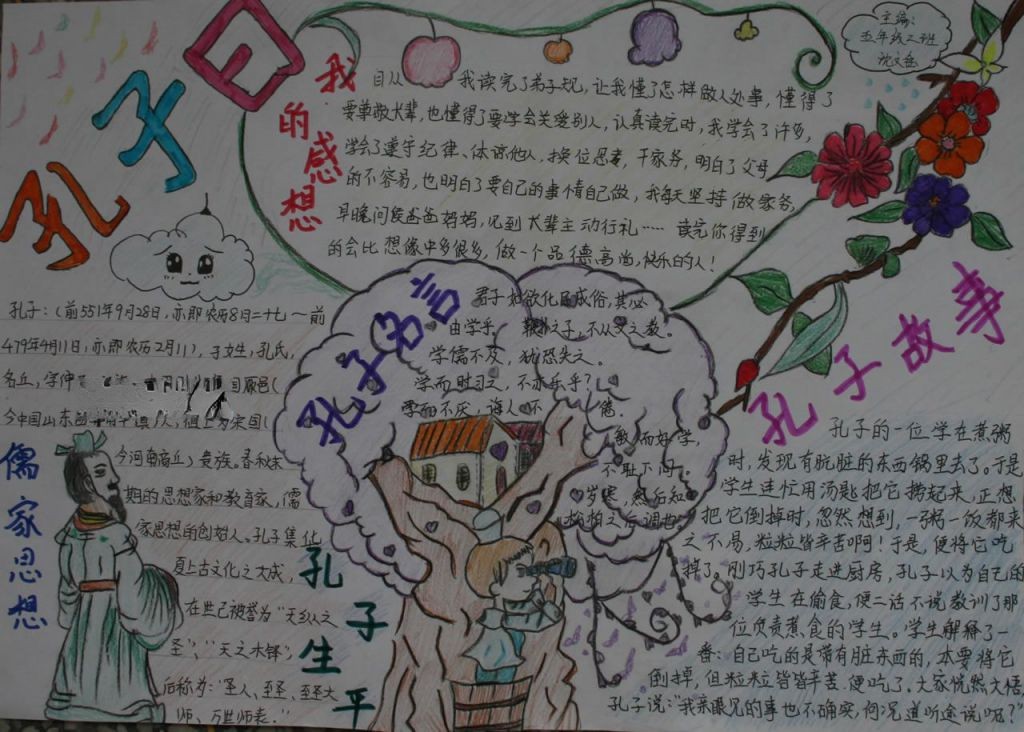 孔子曰
主编：
五年级二班
我的感想
自从
我读完了弟子规，让我懂了怎样做人处事，懂得了
要尊敬长辈，也懂得了要学会关爱别人，认真读完时，我学会了许多，
学会了遵守纪律、体谅他人、换位思考，干家务，明白了父母
的不容易，也明白了要自己的事情自己做，我每天坚持做家务，
早晚问候爸爸妈妈，见到长辈主动行礼……读完你得到
的会比想像中多很多，做一个品德高尚，快乐的人！
孔子名言
君子如欲化民成俗，其必
由学乎。
之子，不从父之教。
学儒不及，犹恐失之。
学而时习之，不亦乐乎？
学而不厌，诲人不倦。
敏而好学，
不耻下问。
岁寒，然后知
松柏之后凋也。
孔子：(前551年9月28日，亦即农历8月二十七～前
479年4月11日，亦即农历2月11)，子姓，孔氏，
名丘，字仲
今中国山东
人，祖上为宋国(
今河南商丘)贵族。春秋末
期的思想家和教育家，儒
家思想的创始人。孔子集化
夏上古文化之大成，
在世已被誉为“天纵之
圣”，“天之木铎”，
后称为：“圣人、至圣、至圣大
师、万世师表。”
儒家思想
孔子生平
孔子故事
孔子的一位学在煮粥
时，发现有肮脏的东西锅里去了。于是
学生连忙用汤匙把它捞起来，正想
把它倒掉时，忽然想到，一粥一饭都来
之不易，粒粒皆辛苦啊！于是，便将它吃
掉了，刚巧孔子走进厨房，孔子以为自己的
学生在偷食，便二话不说教训了那
位负责煮食的学生。学生解释了一
番：自己吃的是带有脏东西的，本要将它
倒掉，但粒粒皆皆辛苦，便吃了。大家恍然大悟，
孔子说：“我亲眼见的事也不确实，何况道听途说呢？”